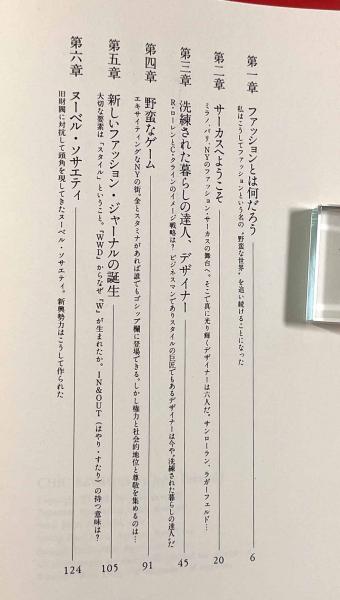 第一章 ファッションとは何だろう 6
私はこうしてファッションという名の、“野蛮な世界”を追い続けることになった
第二章 サーカスへようこそ 20
ミラノ、パリ、NYのファッション・サーカスの舞台へ。そこで真に光り輝くデザイナーは六人だ。サンローラン、ラガーフェルド…
第三章 洗練された暮らしの達人、デザイナー 45
R・ローレンとC・クラインのイメージ戦略は? ビジネスマンでありスタイルの巨匠でもあるデザイナーは今や“洗練された暮らしの達人”だ
第四章 野蛮なゲーム 91
エキサイティングなNYの街。金とスタミナがあれば誰でもゴシップ欄に登場できる。しかし権力と社会的地位と尊敬を集めるのは…
第五章 新しいファッション・ジャーナルの誕生 105
大切な要素は「スタイル」ということ。「WWD」からなぜ「W」が生まれたか。IN&OUT(はやり・すたり)の持つ意味は?
第六章 ヌーベル・ソサエティ 124
旧財閥に対抗して頭角を現してきたヌーベル・ソサエティ。新興勢力はこうして作られた